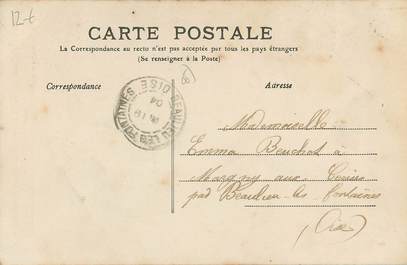 12-€
CARTE POSTALE
La Correspondance au recto n'est pas acceptée par tous les pays étrangers
(Se renseigner à la Poste)
Correspondance
Adresse
BEAULIEU LES FONTAINES OISE
04
Mademoiselle
Emma Beuchot à
Margny aux Cerises
par Beaulieu-les-fontaines
Oise